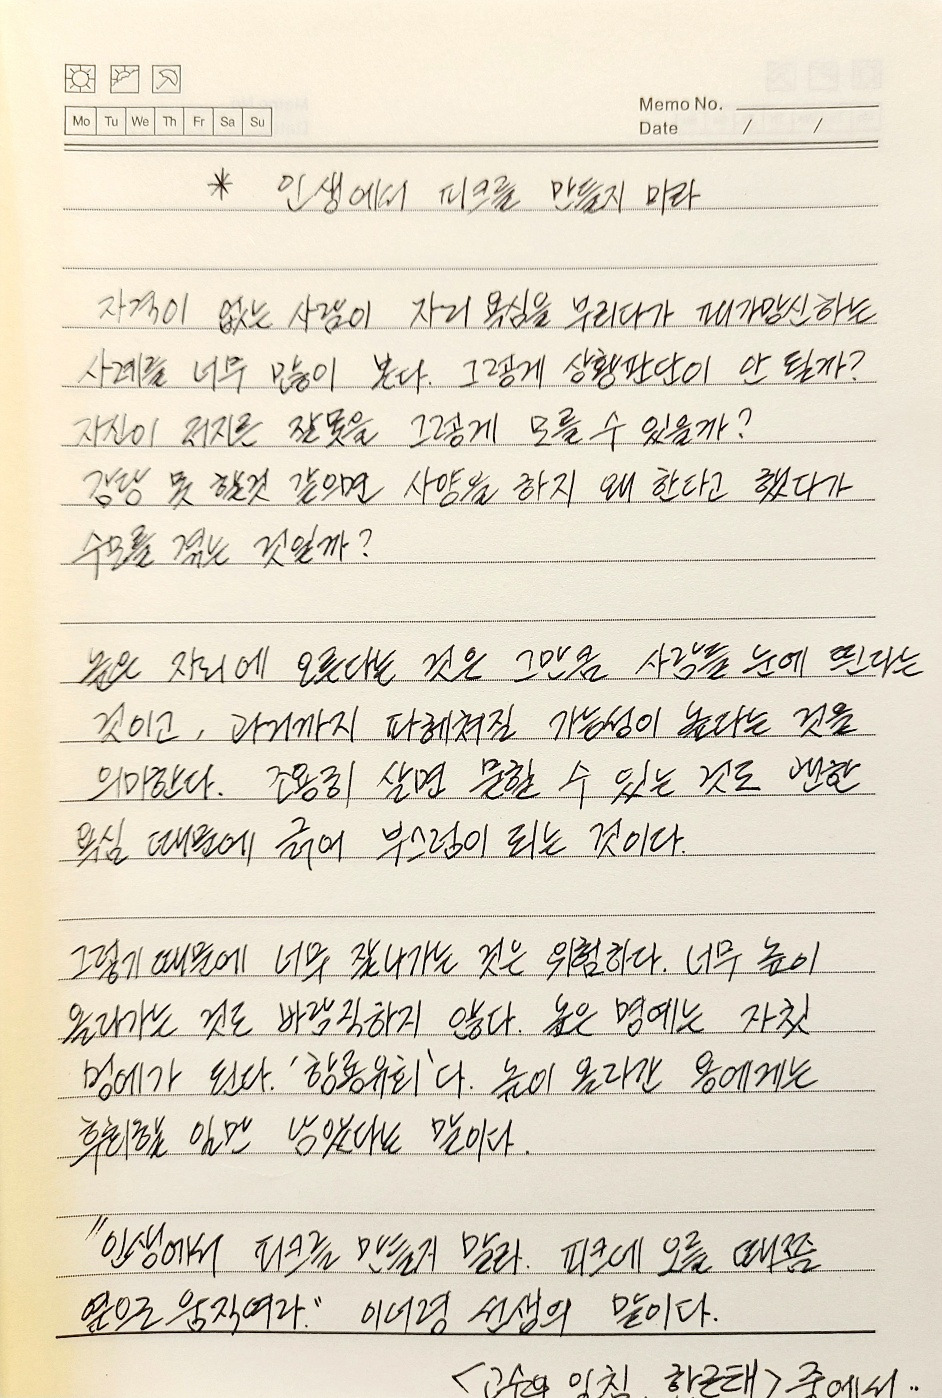 Mo Tu We Th Fr Sa Su
Memo No.
Date / /
* 인생에서 피크를 만들지 마라
자격이 없는 사람이 자리 욕심을 부리다가 패가망신하는
사례를 너무 많이 본다. 그렇게 상황판단이 안 될까?
자신이 저지른 잘못을 그렇게 모를 수 있을까?
감당 못 할것 같으면 사양을 하지 왜 한다고 했다가
수모를 겪는 것일까?
높은 자리에 오른다는 것은 그만큼 사람들 눈에 띈다는
것이고, 과거까지 파헤쳐질 가능성이 높다는 것을
의미한다. 조용히 살면 묻힐 수 있는 것도 괜한
욕심 때문에 긁어 부스럼이 되는 것이다.
그렇기 때문에 너무 잘나가는 것은 위험하다. 너무 높이
올라가는 것도 바람직하지 않다. 높은 명예는 자칫
멍에가 된다. '항룡유회'다. 높이 올라간 용에게는
후회할 일만 남았다는 말이다.
"인생에서 피크를 만들지 말라. 피크에 오를 때쯤
옆으로 움직여라." 이어령 선생의 말이다.
<고수의 일침, 한근태> 중에서..